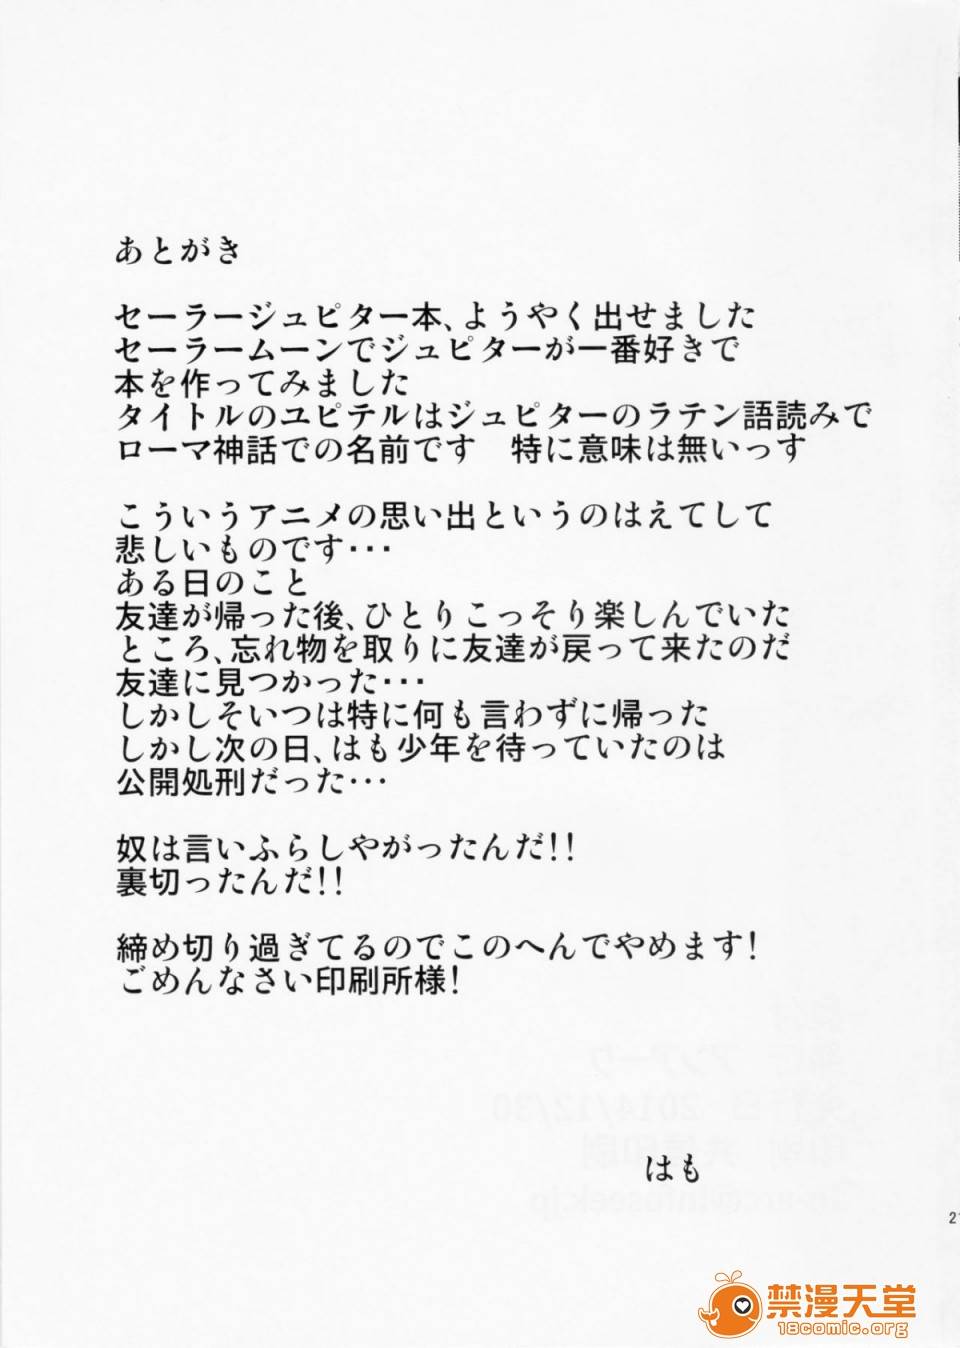 あとがき
セーラージュピター本、ようやく出せました
セーラームーンでジュピターが一番好きで
本を作ってみました
タイトルのユピテルはジュピターのラテン語読みで
ローマ神話での名前です　特に意味は無いっす
こういうアニメの思い出というのはえてして
悲しいものです･･･
ある日のこと
友達が帰った後、ひとりこっそり楽しんでいた
ところ、忘れ物を取りに友達が戻って来たのだ
友達に見つかった･･･
しかしそいつは特に何も言わずに帰った
しかし次の日、はも少年を待っていたのは
公開処刑だった･･･
奴は言いふらしやがったんだ!!
裏切ったんだ!!
締め切り過ぎてるのでこのへんでやめます!
ごめんなさい印刷所様!
2014/12/30
はも
禁漫天堂
18comic.org